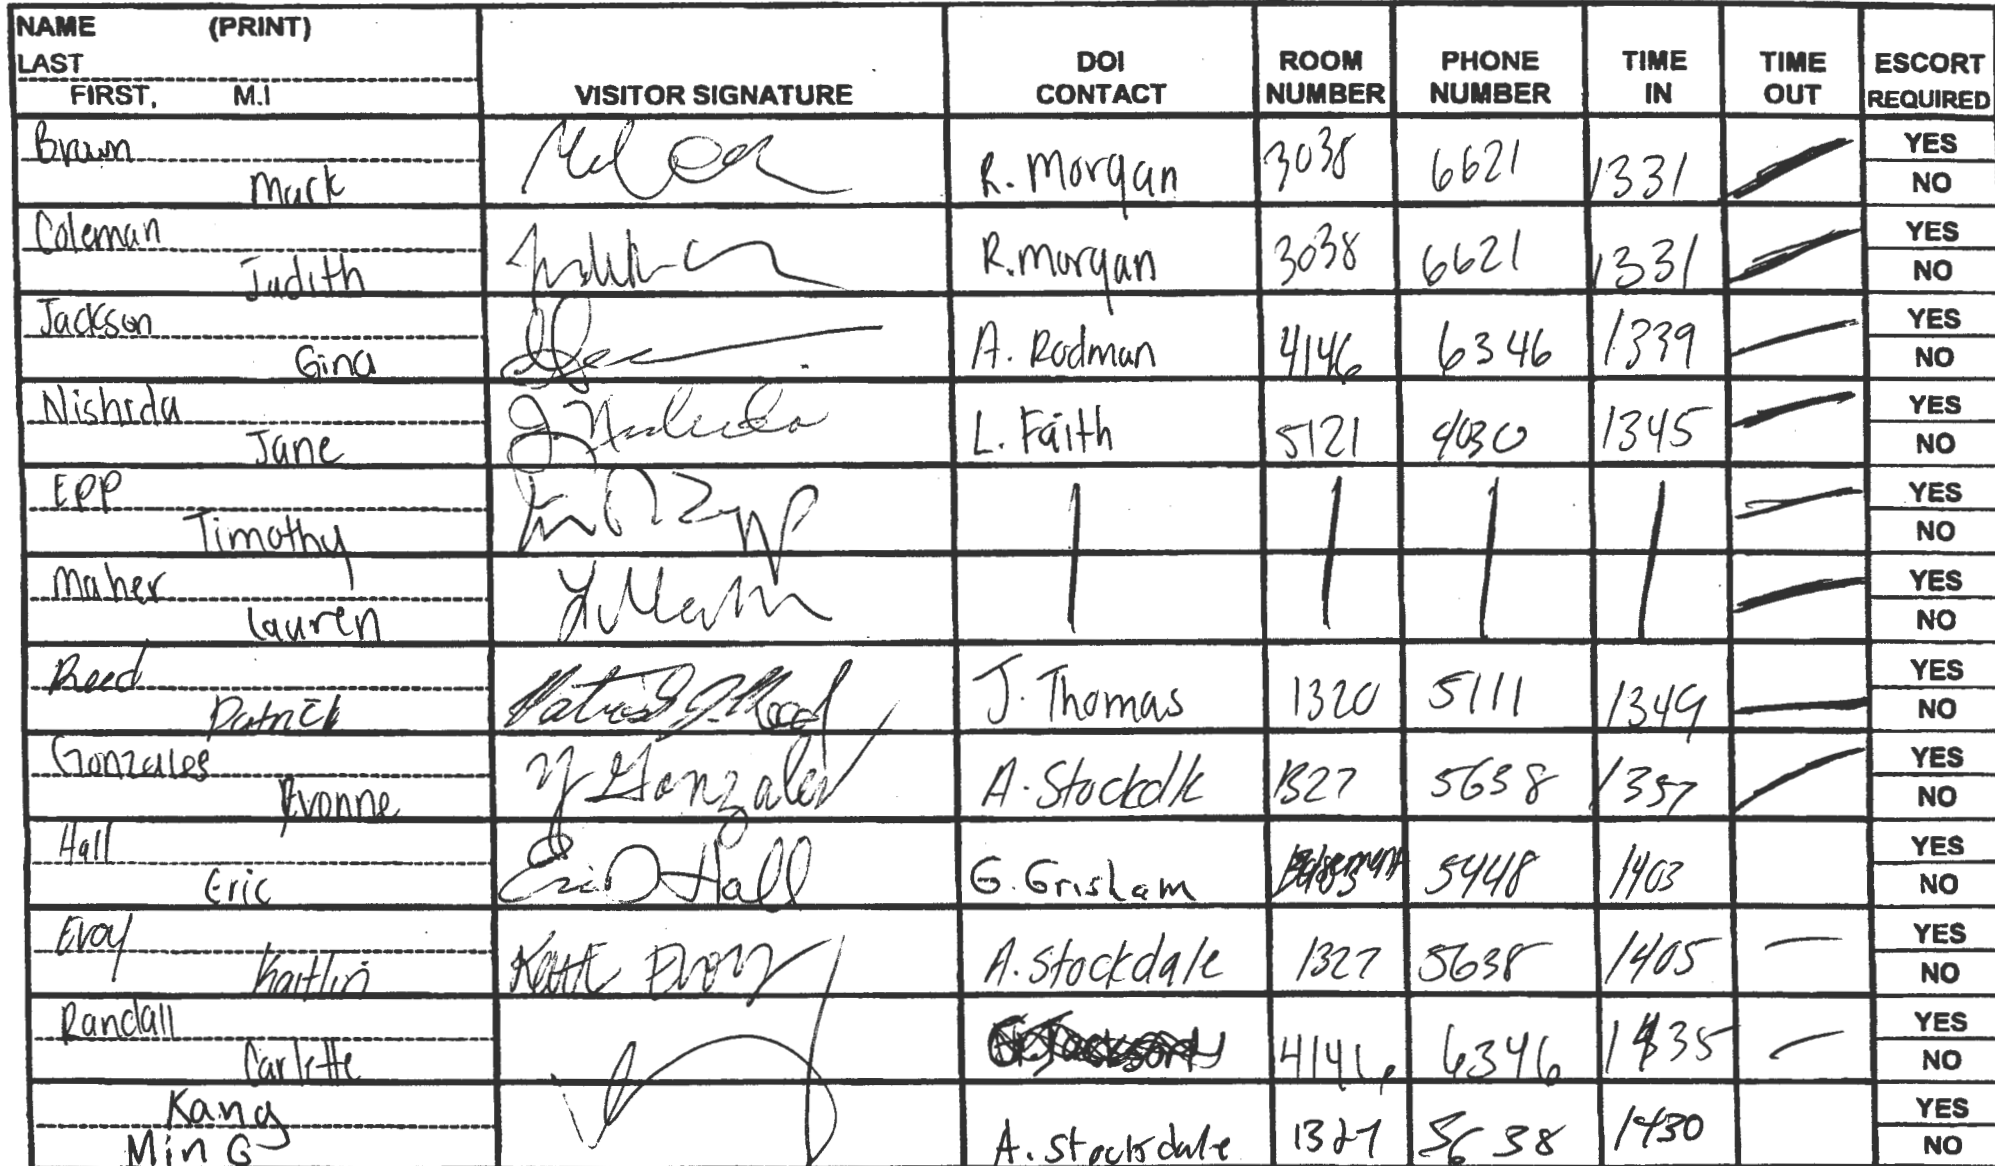 NAME (PRINT)
LAST
FIRST, M.I
VISITOR SIGNATURE
DOI CONTACT
ROOM NUMBER
PHONE NUMBER
TIME IN
TIME OUT
ESCORT REQUIRED
Brown
Mark R. Morgan 3038 6621 1331 YES NO
Coleman
Judith R. Morgan 3038 6621 1331 YES NO
Jackson
Gina A. Rodman 4146 6346 1339 YES NO
Nishida
Jane J. Nishida L. Faith 5121 4030 1345 YES NO
Epp
Timothy YES NO
Maher
Lauren YES NO
Reed
Patrick Patrick J. Reed J. Thomas 1320 5111 1349 YES NO
Gonzales
Evonne Y Gonzales A. Stockdlk 1327 5638 1357 YES NO
Hall
Eric Eric Hall G. Grisham 5448 1403 YES NO
Evoy
Kaitlin Katie Evoy A. Stockdale 1327 5638 1405 YES NO
Randall
Carlotte 4146 6346 1435 YES NO
Kang
Min G A. Stocksdale 1327 5638 1430 YES NO